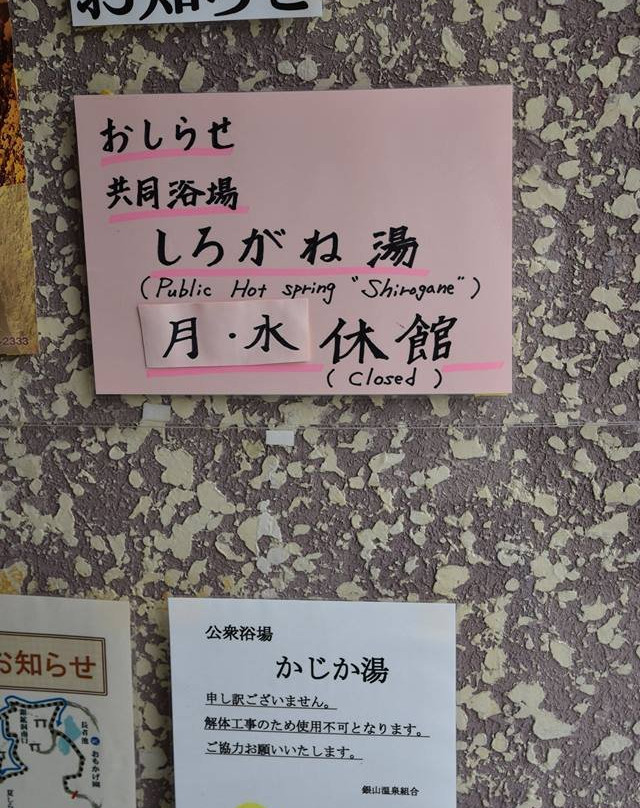 お知らせ
おしらせ
共同浴場
しろがね湯
(Public Hot spring "Shirogane")
月・水 休館
(Closed)
2333
お知らせ
長者池
おもかげ園
公衆浴場
かじか湯
申し訳ございません。
解体工事のため使用不可となります。
ご協力お願いいたします。
銀山温泉組合